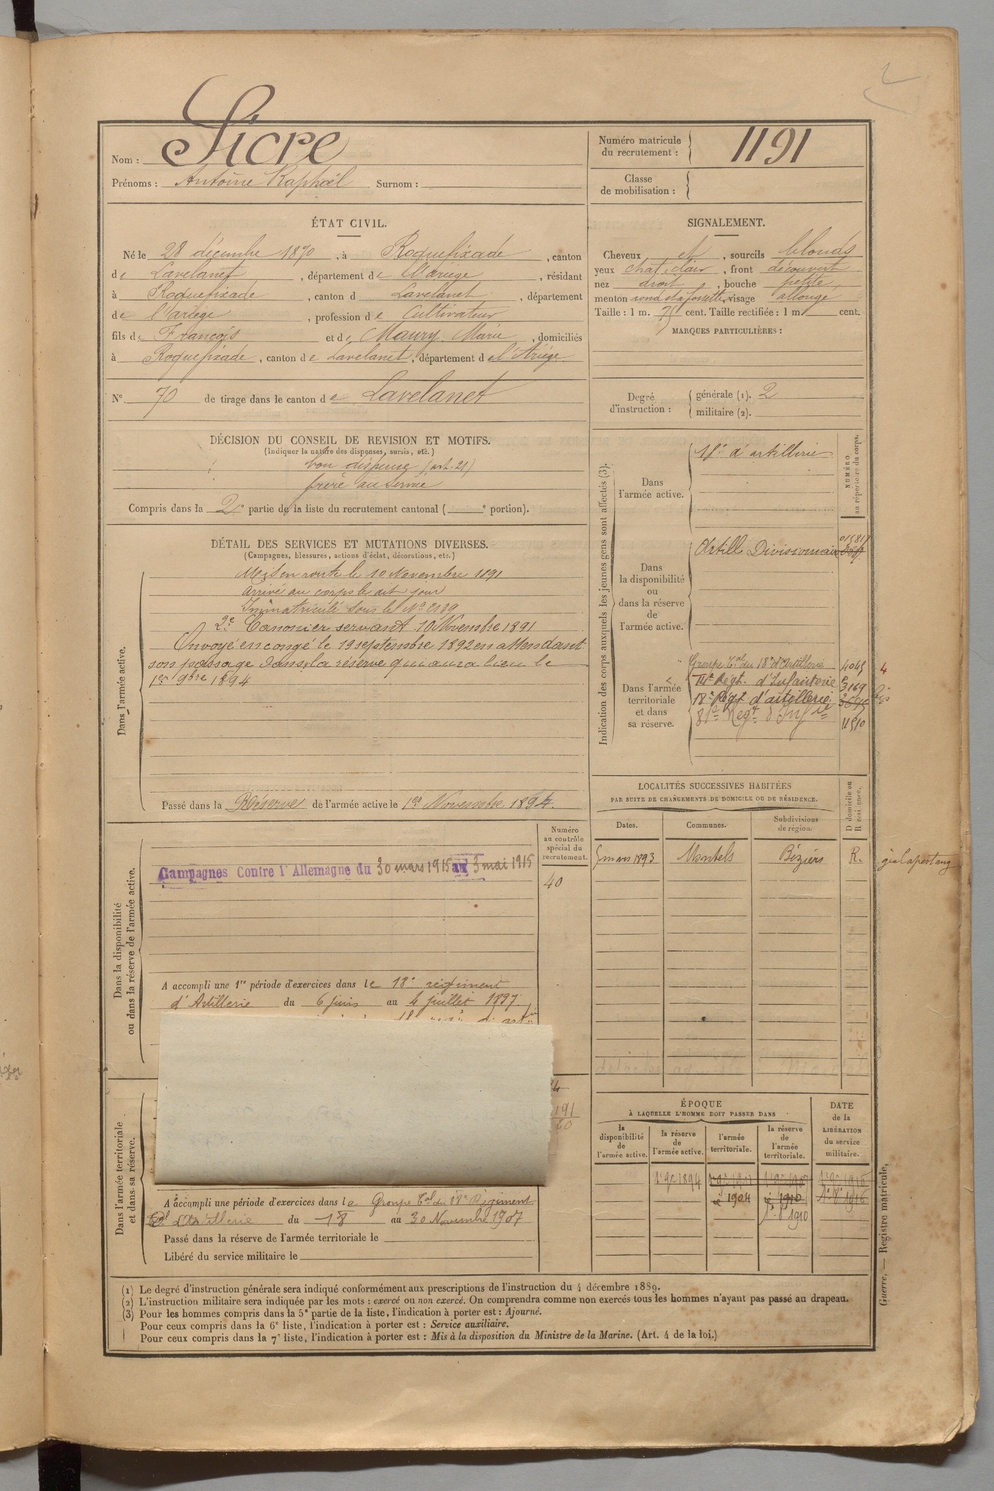 Nom : Sicre
Prénoms : Antoine Raphaël Surnom :
Numéro matricule du recrutement : 1191
Classe de mobilisation :
ÉTAT CIVIL.
Né le 28 décembre 1870, à Roquefixade, canton
de Lavelanet, département de l'Ariège, résidant
à Roquefixade, canton d Lavelanet, département
de l'Ariège, profession de Cultivateur
fils de François et de Maury Marie, domiciliés
à Roquefixade, canton de Lavelanet, département de l'Ariège
N° 70 de tirage dans le canton de Lavelanet
SIGNALEMENT.
Cheveux et, sourcils blonds
yeux chat. clair, front découvert
nez droit, bouche petite
menton rond et à fossette, visage allongé
Taille : 1 m. 75 cent. Taille rectifiée : 1 m. cent.
MARQUES PARTICULIÈRES :
Degré d'instruction :
générale (1). 2
militaire (2).
DÉCISION DU CONSEIL DE REVISION ET MOTIFS.
(Indiquer la nature des dispenses, sursis, etc.)
bon dispensé (art. 21)
frère au service
Compris dans la 2e partie de la liste du recrutement cantonal ( e portion).
DÉTAIL DES SERVICES ET MUTATIONS DIVERSES.
(Campagnes, blessures, actions d'éclat, décorations, etc.)
Dans l'armée active.
Mis en route le 10 novembre 1891
Arrivé au corps le dit jour
Immatriculé sous le N° 2139
2e Canonier servant 10 Novembre 1891
Envoyé en congé le 19 septembre 1892 en attendant
son passage dans la réserve qui aura lieu le
1er 9bre 1894
Passé dans la Réserve de l'armée active le 1er Novembre 1894.
Indication des corps auxquels les jeunes gens sont affectés (3).
NUMÉRO au répertoire du corps.
Dans l'armée active.
d'artillerie
Dans la disponibilité ou dans la réserve de l'armée active.
Artill. Divisionnaire
Dans l'armée territoriale et dans sa réserve.
Groupe Tal du 18e d'Artillerie 4045
Regt. d'Infanterie 3169
18e Regt d'artillerie
81e Regt d'Infie 11510
LOCALITÉS SUCCESSIVES HABITÉES
PAR SUITE DE CHANGEMENTS DE DOMICILE OU DE RÉSIDENCE.
Dates. Communes. Subdivisions de région. D domicile ou R résidence.
5 mars 1893 Montels Béziers R.
Dans la disponibilité ou dans la réserve de l'armée active.
Numéro au contrôle spécial du recrutement.
40
Campagnes Contre l'Allemagne du 30 mars 1915 au 3 mai 1915
A accompli une 1re période d'exercices dans le 18e régiment
d'Artillerie du 6 juin au 4 juillet 1897
Dans l'armée territoriale et dans sa réserve.
A accompli une période d'exercices dans le Groupe Tal du 18e Régiment
d'Artillerie du 18 au 30 Novembre 1907
Passé dans la réserve de l'armée territoriale le
Libéré du service militaire le
ÉPOQUE
À LAQUELLE L'HOMME DOIT PASSER DANS
la disponibilité de l'armée active.
la réserve de l'armée active.
l'armée territoriale.
la réserve de l'armée territoriale.
DATE de la LIBÉRATION du service militaire.
1er 9e 1894
1904
1910
1910
1916
(1) Le degré d'instruction générale sera indiqué conformément aux prescriptions de l'instruction du 4 décembre 1889.
(2) L'instruction militaire sera indiquée par les mots : exercé ou non exercé. On comprendra comme non exercés tous les hommes n'ayant pas passé au drapeau.
(3) Pour les hommes compris dans la 5e partie de la liste, l'indication à porter est : Ajourné.
Pour ceux compris dans la 6e liste, l'indication à porter est : Service auxiliaire.
Pour ceux compris dans la 7e liste, l'indication à porter est : Mis à la disposition du Ministre de la Marine. (Art. 4 de la loi.)
Guerre. — Registre matricule.